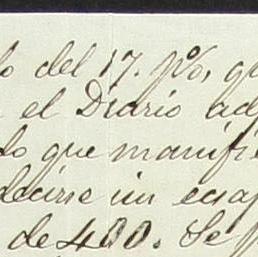 o del 17. p%, qu
el Diario ad
do que manifie
decirse un esa
de 400. Se